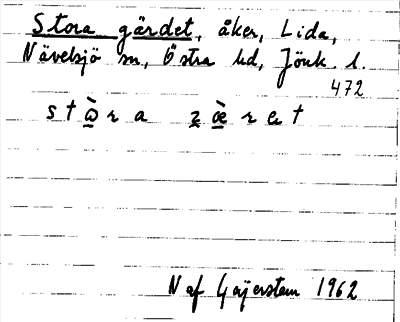 Stora gärdet, åker, Lida,
Nävelsjö sn, Östra hd, Jönk. l.
472
stò̱ra ẕæ̱̀ret
N af Geijerstam 1962